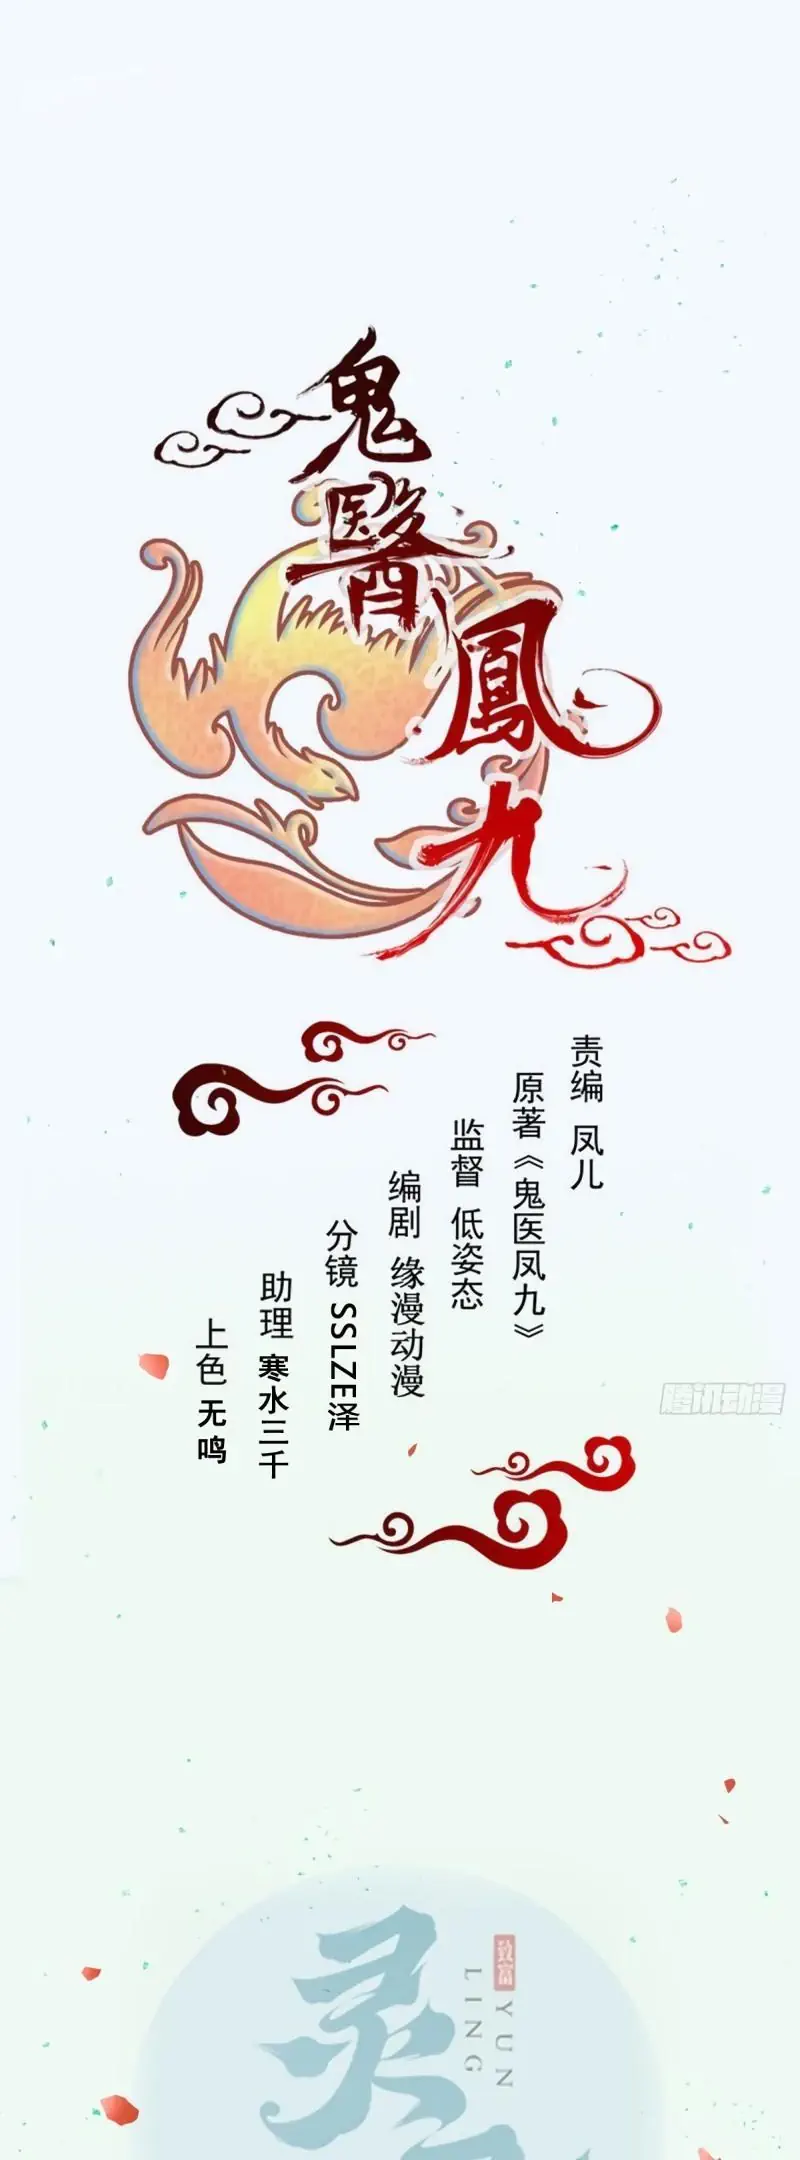 鬼醫鳳九
责编 凤儿
原著《鬼医凤九》
监督 低姿态
编剧 缘漫动漫
分镜 SSLZE泽
助理 寒水三千
上色 无鸣
腾讯动漫
灵
致富
YUN
LING